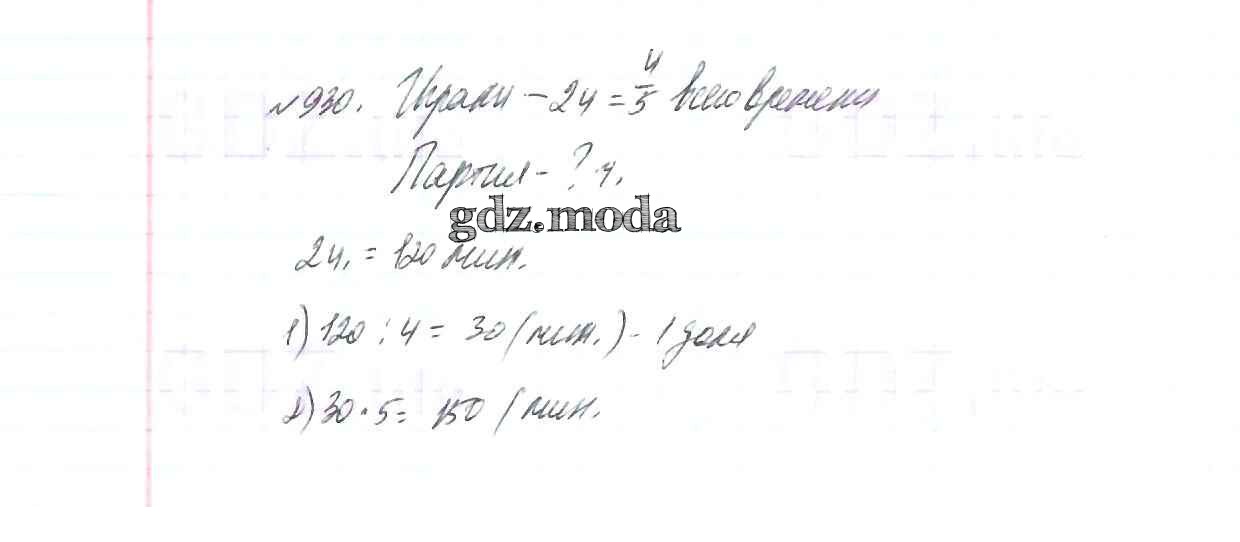 №930. Играли – 2ч = 4/5 всего времени
Партия - ? ч.
gdz.moda
2ч. = 120 мин.
1) 120 : 4 = 30 (мин.) - 1 доля
2) 30 · 5 = 150 (мин.